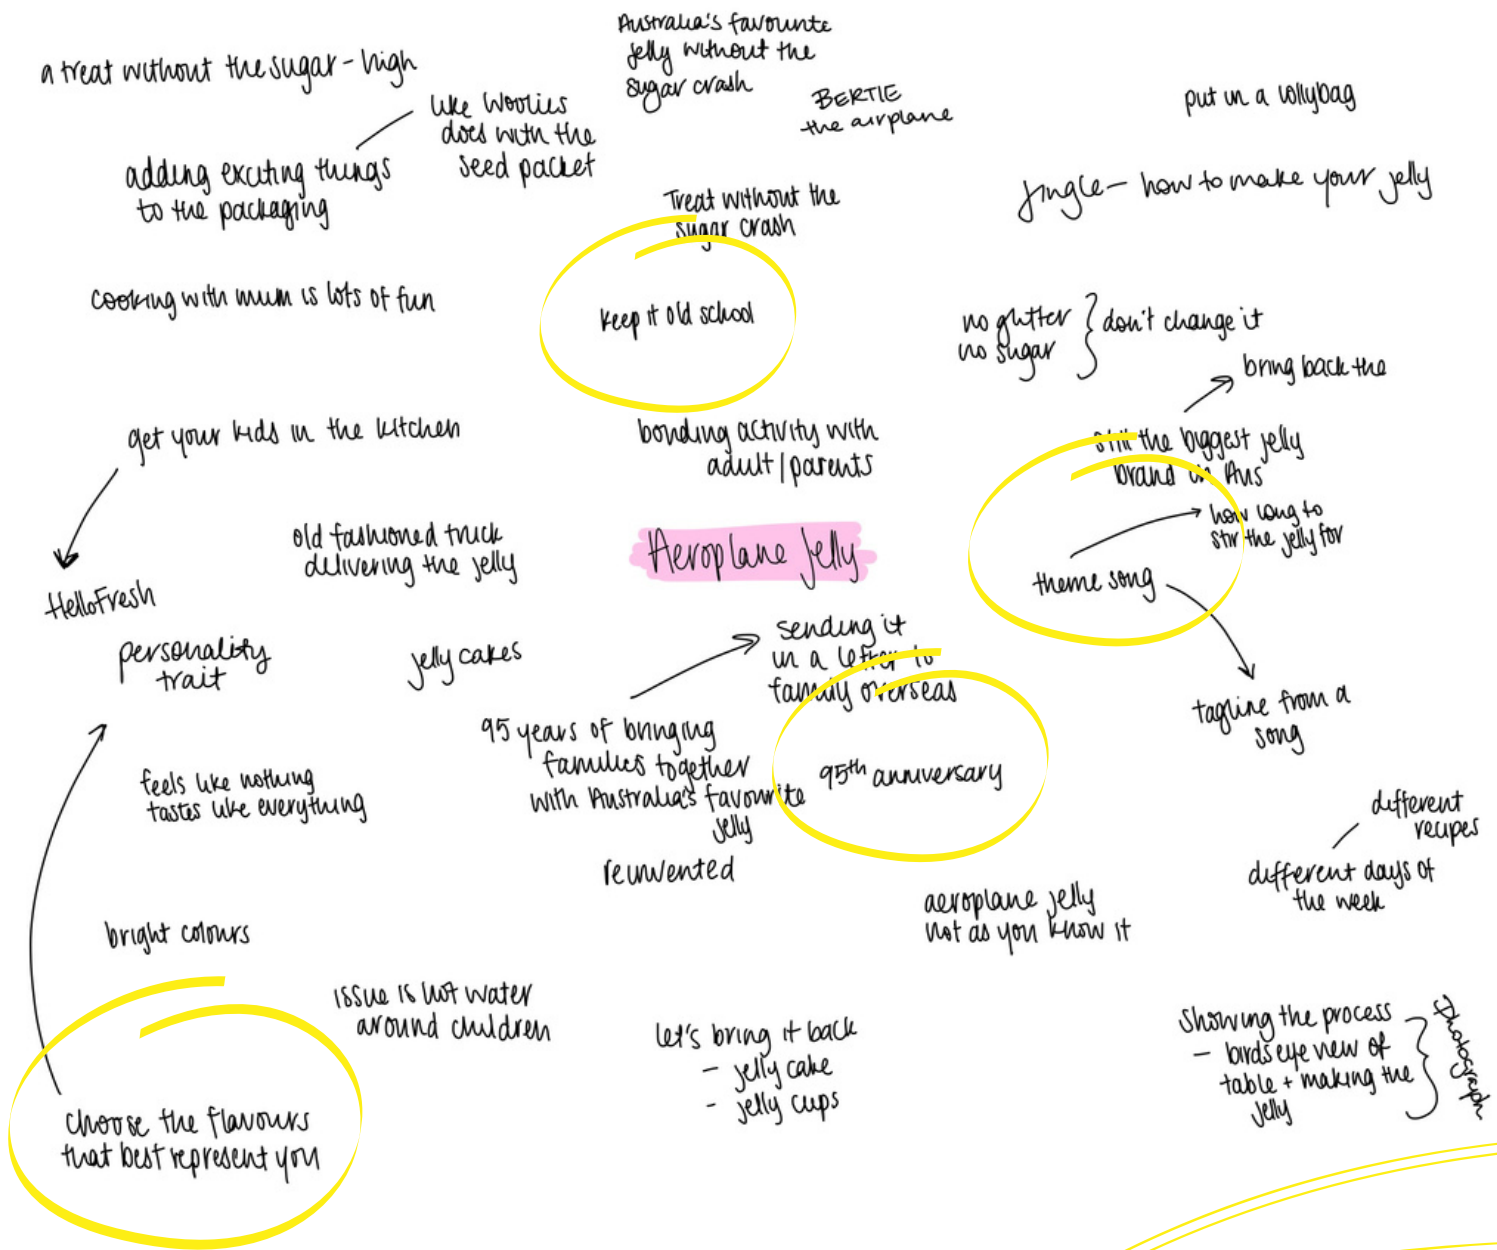 a treat without the sugar - high
Australia's favourite
jelly without the
sugar crash
like Woolies
does with the
seed packet
BERTIE
the airplane
put in a lollybag
adding exciting things
to the packaging
Treat without the
sugar crash
Jingle - how to make your jelly
cooking with mum is lots of fun
keep it old school
no glutter
no sugar
don't change it
bring back the
get your kids in the kitchen
bonding activity with
adult | parents
still the biggest jelly
brand in Aus
how long to
stir the jelly for
theme song
old fashioned truck
delivering the jelly
Aeroplane Jelly
HelloFresh
personality
trait
jelly cakes
sending it
in a letter to
family overseas
tagline from a
song
95 years of bringing
families together
with Australia's favourite
jelly
95th anniversary
feels like nothing
tastes like everything
reinvented
different
recipes
different days of
the week
aeroplane jelly
not as you know it
bright colours
issue is hot water
around children
let's bring it back
- jelly cake
- jelly cups
showing the process
- birds eye view of
table + making the
jelly
Photograph
choose the flavours
that best represent you